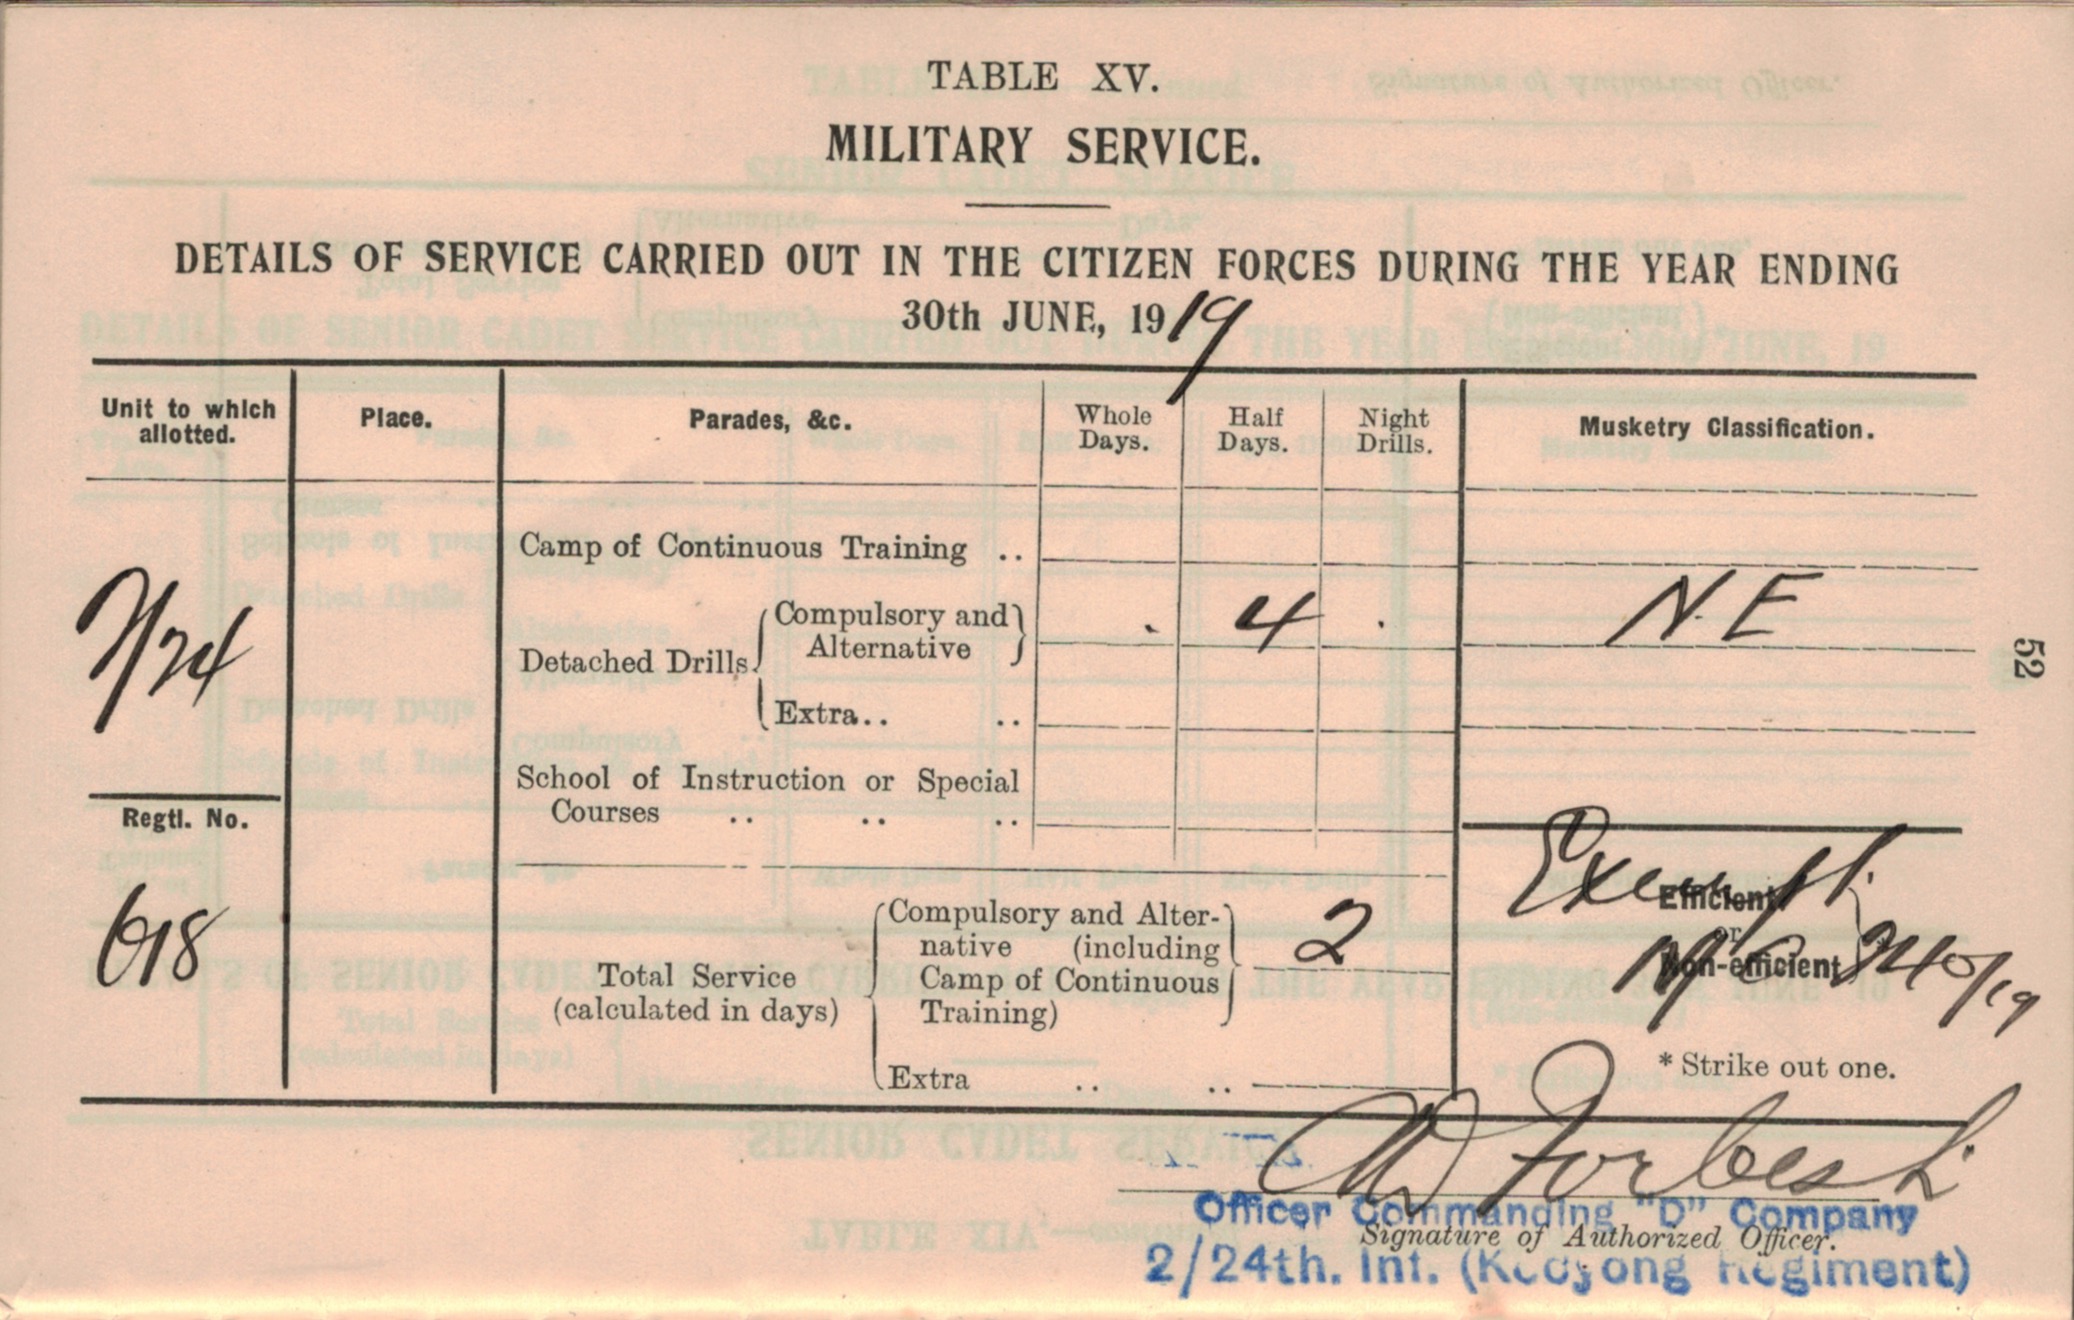 TABLE XV.
MILITARY SERVICE.
DETAILS OF SERVICE CARRIED OUT IN THE CITIZEN FORCES DURING THE YEAR ENDING
30th JUNE, 1919
Unit to which allotted.
Place.
Parades, &c.
Whole Days.
Half Days.
Night Drills.
Musketry Classification.
Camp of Continuous Training ..
2/24
Detached Drills
Compulsory and Alternative
4
N.E
Extra.. ..
School of Instruction or Special
Courses .. .. ..
Regtl. No.
618
Total Service
(calculated in days)
Compulsory and Alter-
native (including
Camp of Continuous
Training)
2
Extra .. ..
Exempt.
Efficient
or
Non-efficient
* Strike out one.
52
Forbes Lt
Officer Commanding "D" Company
Signature of Authorized Officer.
2/24th. Inf. (Kooyong Regiment)